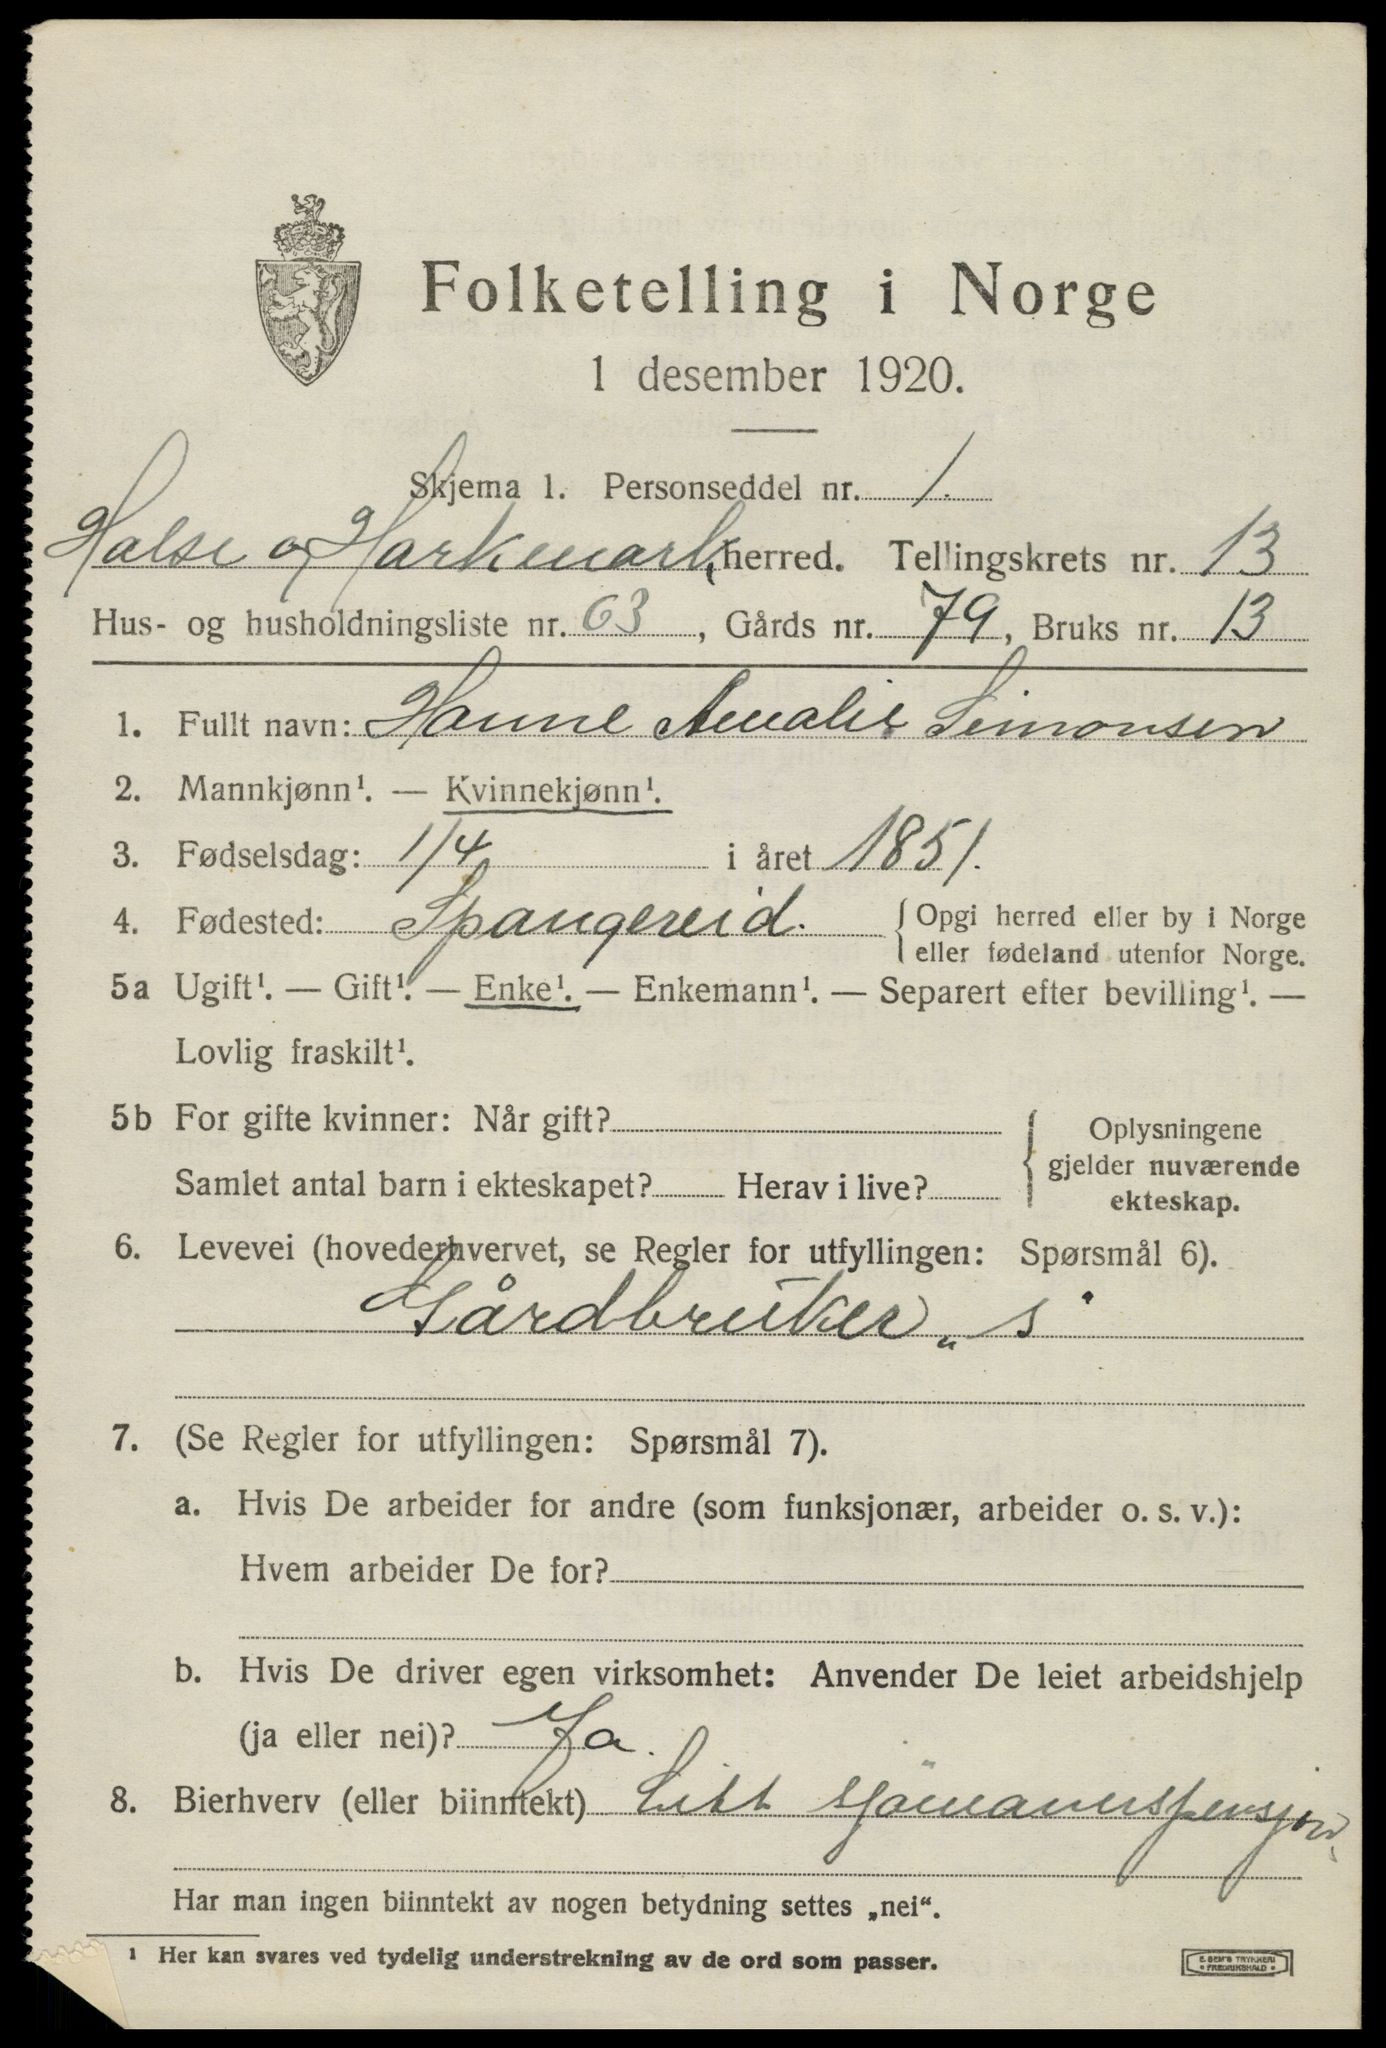 Folketelling i Norge
1 desember 1920.
Skjema 1. Personseddel nr. 1.
Halse og Harkmark herred. Tellingskrets nr. 13
Hus- og husholdningsliste nr. 63, Gårds nr. 79, Bruks nr. 13
1. Fullt navn: Hanne Amalie Simonsen
2. Mannkjønn¹. — Kvinnekjønn¹.
3. Fødselsdag: 1/4 i året 1851.
4. Fødested: Spangereid. { Opgi herred eller by i Norge
eller fødeland utenfor Norge.
5a Ugift¹. — Gift¹. — Enke¹. — Enkemann¹. — Separert efter bevilling¹. —
Lovlig fraskilt¹.
5b For gifte kvinner: Når gift?
Samlet antal barn i ekteskapet? Herav i live?
{ Oplysningene
gjelder nuværende
ekteskap.
6. Levevei (hovederhvervet, se Regler for utfyllingen: Spørsmål 6).
Gårdbruker „ s
7. (Se Regler for utfyllingen: Spørsmål 7).
a. Hvis De arbeider for andre (som funksjonær, arbeider o. s. v.):
Hvem arbeider De for?
b. Hvis De driver egen virksomhet: Anvender De leiet arbeidshjelp
(ja eller nei)? Ja.
8. Bierhverv (eller biinntekt) Litt sjömannspensjon.
Har man ingen biinntekt av nogen betydning settes „nei“.
¹ Her kan svares ved tydelig understrekning av de ord som passer.
E. SEM'S TRYKKERI
• FREDRIKSHALD •